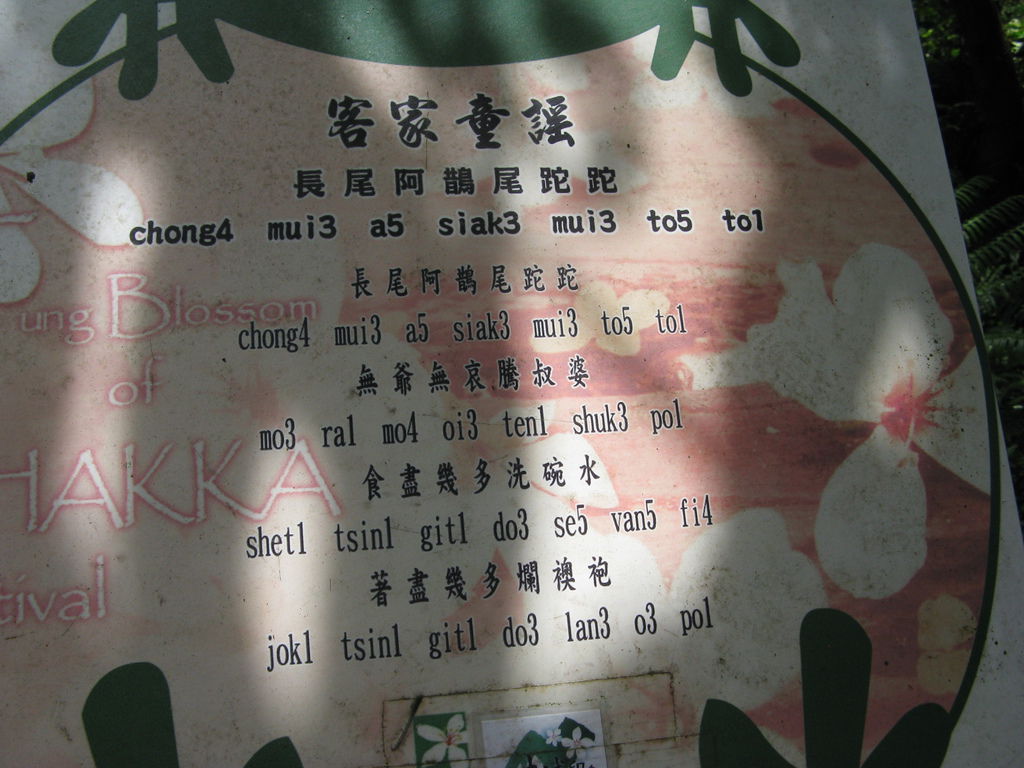 客家童謠
長尾阿鵲尾跎跎
chong4 mui3 a5 siak3 mui3 to5 to1
長尾阿鵲尾跎跎
chong4 mui3 a5 siak3 mui3 to5 to1
無爺無哀騰叔婆
mo3 ra1 mo4 oi3 ten1 shuk3 po1
食盡幾多洗碗水
shet1 tsin1 git1 do3 se5 van5 fi4
著盡幾多爛襖袍
jok1 tsin1 git1 do3 lan3 o3 po1
ung Blossom
of
HAKKA
tival